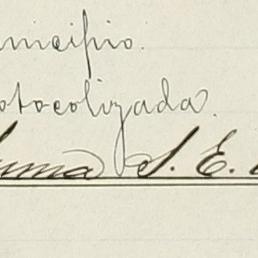 incipio.
otocolizada.
Suma S. E.